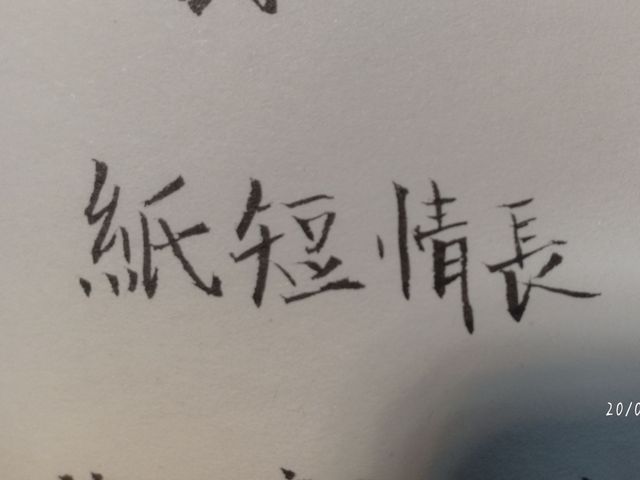 紙短情長
20/0